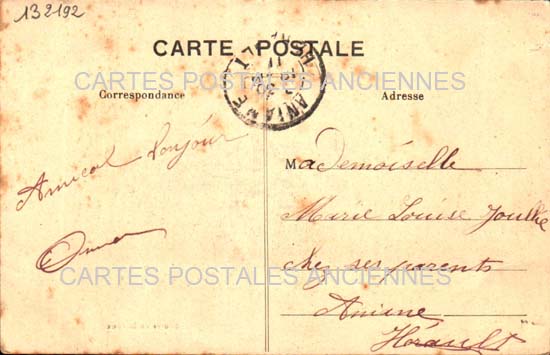 132192
CARTE POSTALE
ANIANE
CARTES POSTALES ANCIENNES
Correspondance
Adresse
Amical bonjour
Mademoiselle
Marie Louise
chez ses parents
CARTES POSTALES ANCIENNES
Aniane
Hérault